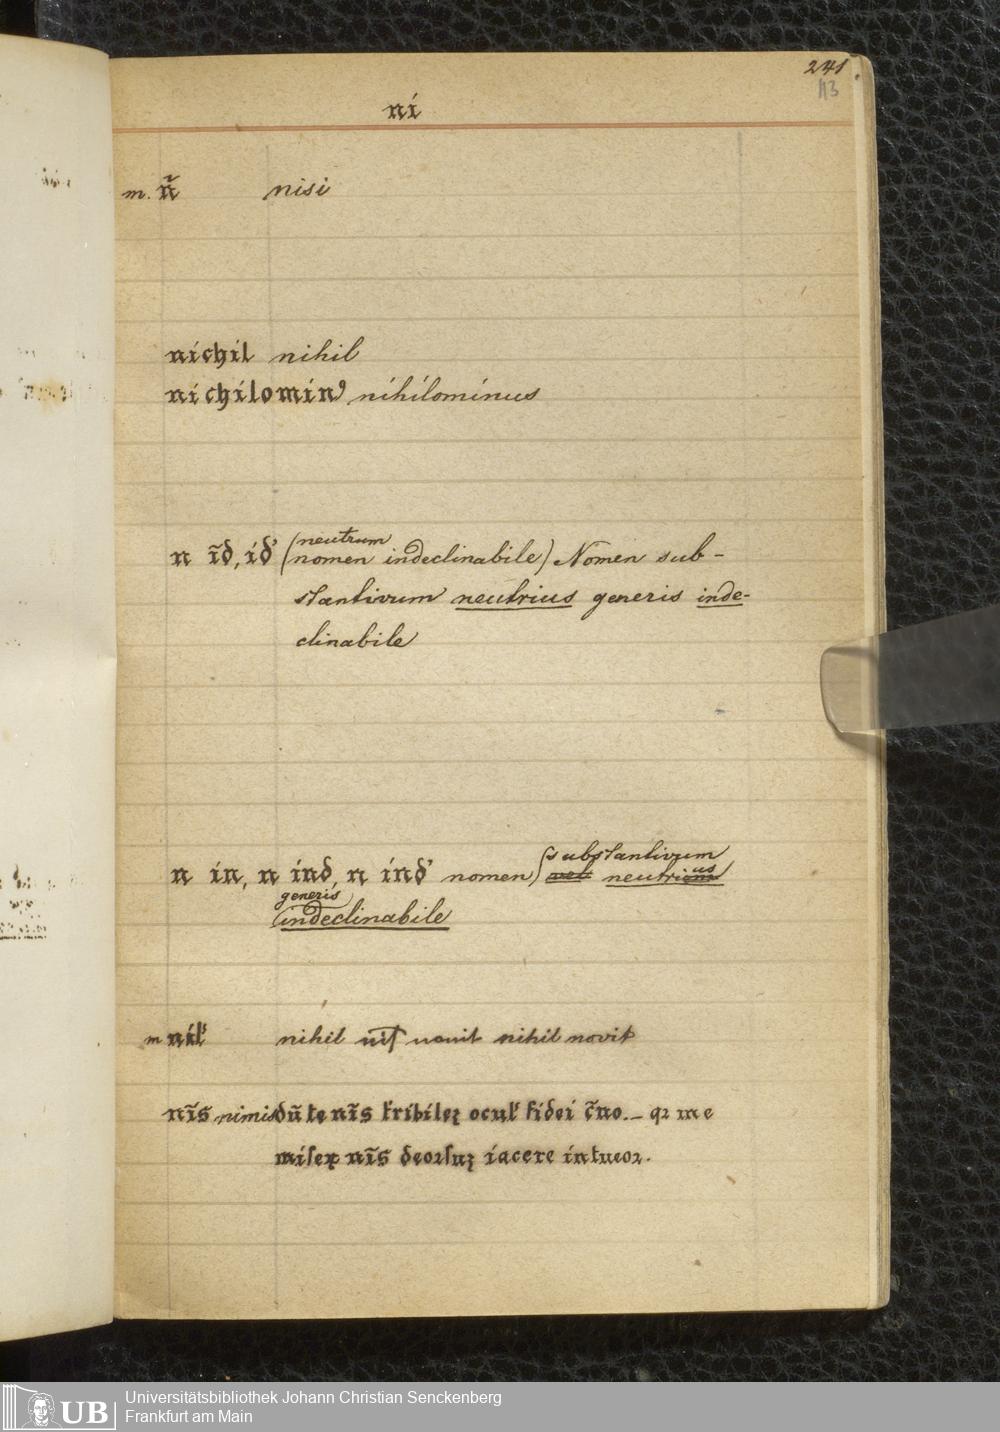 241.
113
ni
m. n̄ nisi
nichil nihil
nichilominꝰ nihilominus
neutrum
n īd, id' (nomen indeclinabile) Nomen sub-
stantivum neutrius generis inde-
clinabile
substantivum
n in, n ind, n ind' nomen neutrius
generis
(indeclinabile
m nil' nihil nouit nihil novit
nīs nimis dū te nīs t'ribileȝ ocul' fidei c̄no. – qꝛ me
miseꝝ nīs deorsuȝ iacere intueor.
UB Universitätsbibliothek Johann Christian Senckenberg
Frankfurt am Main